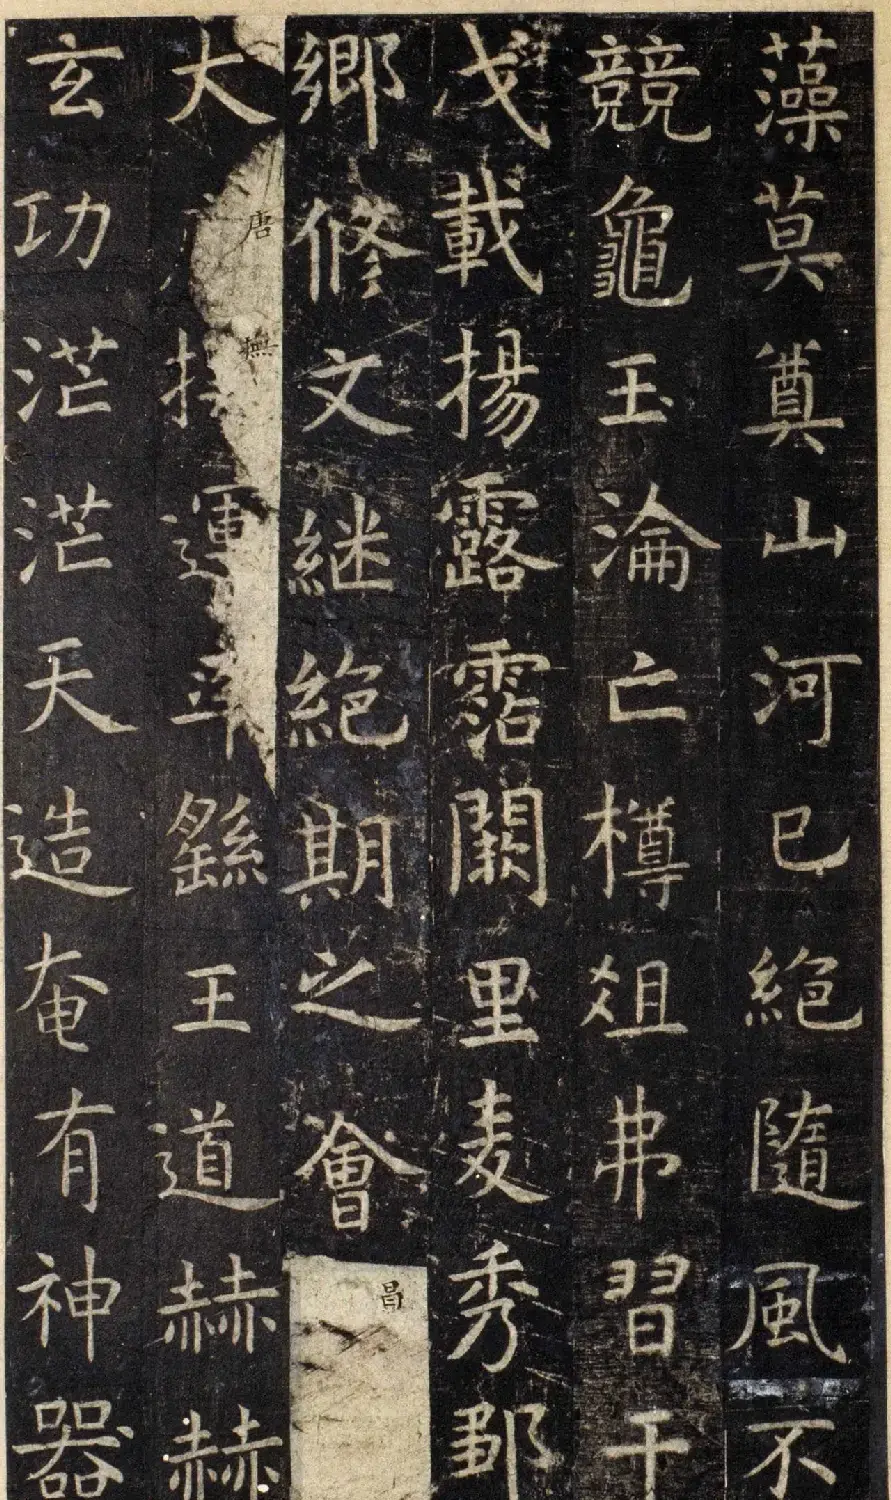 藻莫奠山河已絕隨風不
競龜玉淪亡樽俎弗習干
戈載揚露霑闕里麦秀鄒
鄉修文継絕期之會昌
大唐撫運率繇王道赫赫
玄功茫茫天造奄有神器